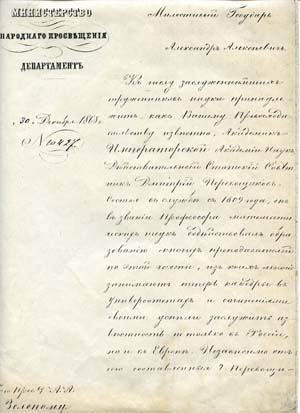 МИНИСТЕРСТВО
НАРОДНАГО ПРОСВѢЩЕНІЯ
ДЕПАРТАМЕНТЪ
30. Декабря 1868.
№ 10427.
Милостивый Государь
Александръ Алексѣевичъ.
Къ числу заслуженнѣйшихъ
тружениковъ науки принадле-
житъ, какъ Вашему Превосходи-
тельству извѣстно, Академикъ
Императорской Академіи Наукъ
Дѣйствительный Статскій Совѣт-
никъ Дмитрій Перевощиковъ.
Состоя въ службѣ съ 1809 года, онъ
въ званіи Профессора математиче-
скихъ наукъ содѣйствовалъ обра-
зованію многихъ преподавателей
по этой части, изъ коихъ иные
занимаютъ теперь каѳедры въ
Университетахъ, и сочиненіями
своими успѣлъ заслужить из-
вѣстность не только въ Россіи,
но и въ Европѣ. Независимо отъ
сего составленныя Г. Перевощи-
Его Прев. А. А.
Зеленому